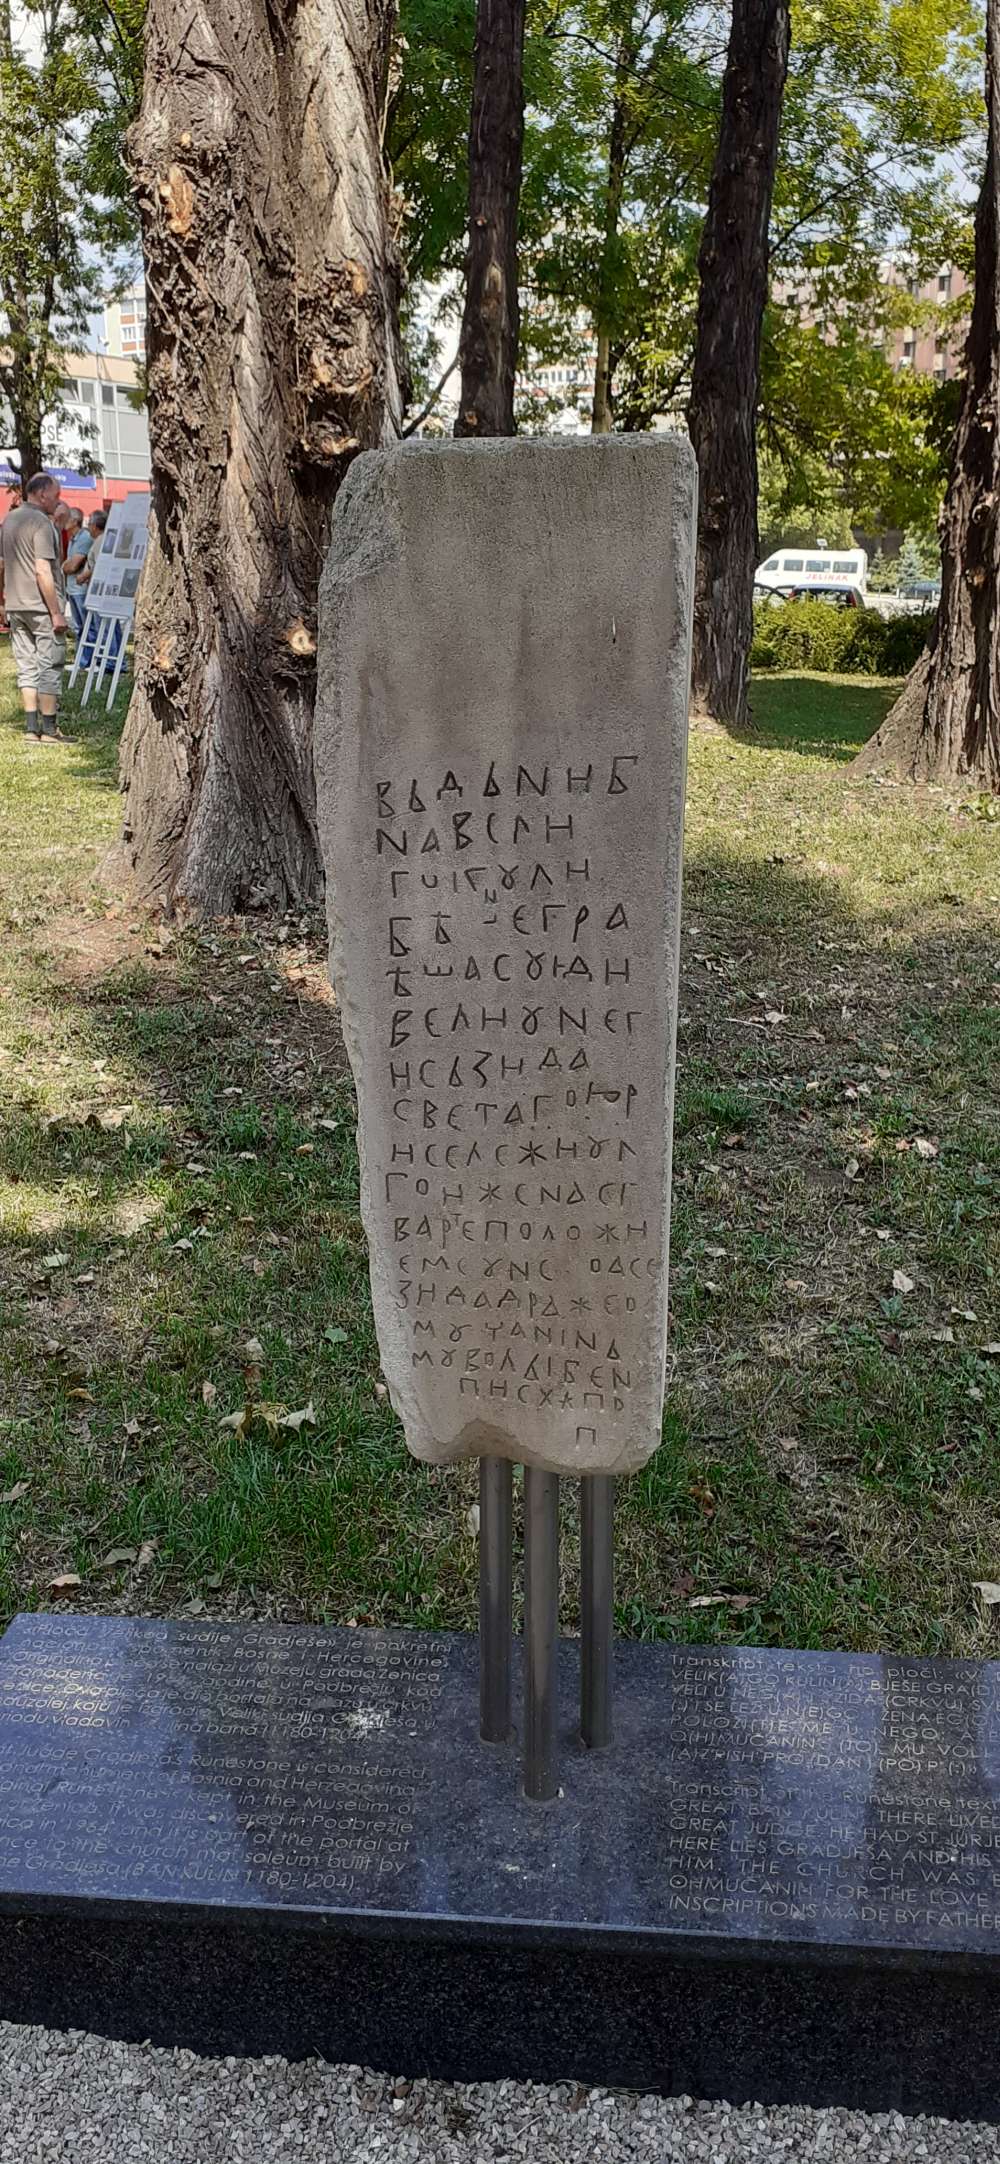 ВЬДЬNНБ
NАВЕЛН
ГОІГȢЛН
БѢNЕГРА
ѢШАСȢЮДН
ВЕЛНȢNЕГ
НСЬЗНДА
СВЕТАГОЮР
НСЕЛЕЖНȢЛ
ГОНЖЕNАЕГ
ВАРТЕПОЛОЖН
ЕМЕȢNЕ ОАСЕ
ЗНДАДРАЖЕО
МȢЧАNІNЬ
МȢВОЛЬІВЕN
ПНСХЖПЬ
П
«Ploča Velikog sudije Gradješe» je pokretni
nacionalni spomenik Bosne i Hercegovine.
Original se nalazi u Muzeju grada Zenica
1964. godine u Podbrežju kod
je dio portala na ulazu u crkvu
kaju je izgradio Veliki sudija Gradješa u
vladavine Kulina bana (1180-1204)
Judge Gradješa's Runestone is considered
monument of Bosnia and Herzegovina
Runestone is kept in the Museum of
Zenica. It was discovered in Podbrežje
in 1964, and it is part of the portal at
to the church mausoleum built by
Gradješa (BAN KULIN 1180-1204).
Transkript teksta na ploči: «V
VELIK(A)GO KULIN(A) BJEŠE GRA(D)
VELI U NJEG
(.) I SE LEŽI U NJ(E)GO I ŽENA EGO
POLOŽI(T)E ME U NEGO. A
O(H)MUČANIN. (TO) MU VOL
(A)Z PISH PRO(DAN) (PO) P (.)»
Transcript of the Runestone text
GREAT BAN KULIN THERE LIVED
GREAT JUDGE. HE HAD ST. JURJE
HERE LIES GRADJEŠA AND HIS
HIM. THE CHURCH WAS
OHMUČANIN FOR THE LOVE
INSCRIPTIONS MADE BY FATHER
JELINAK